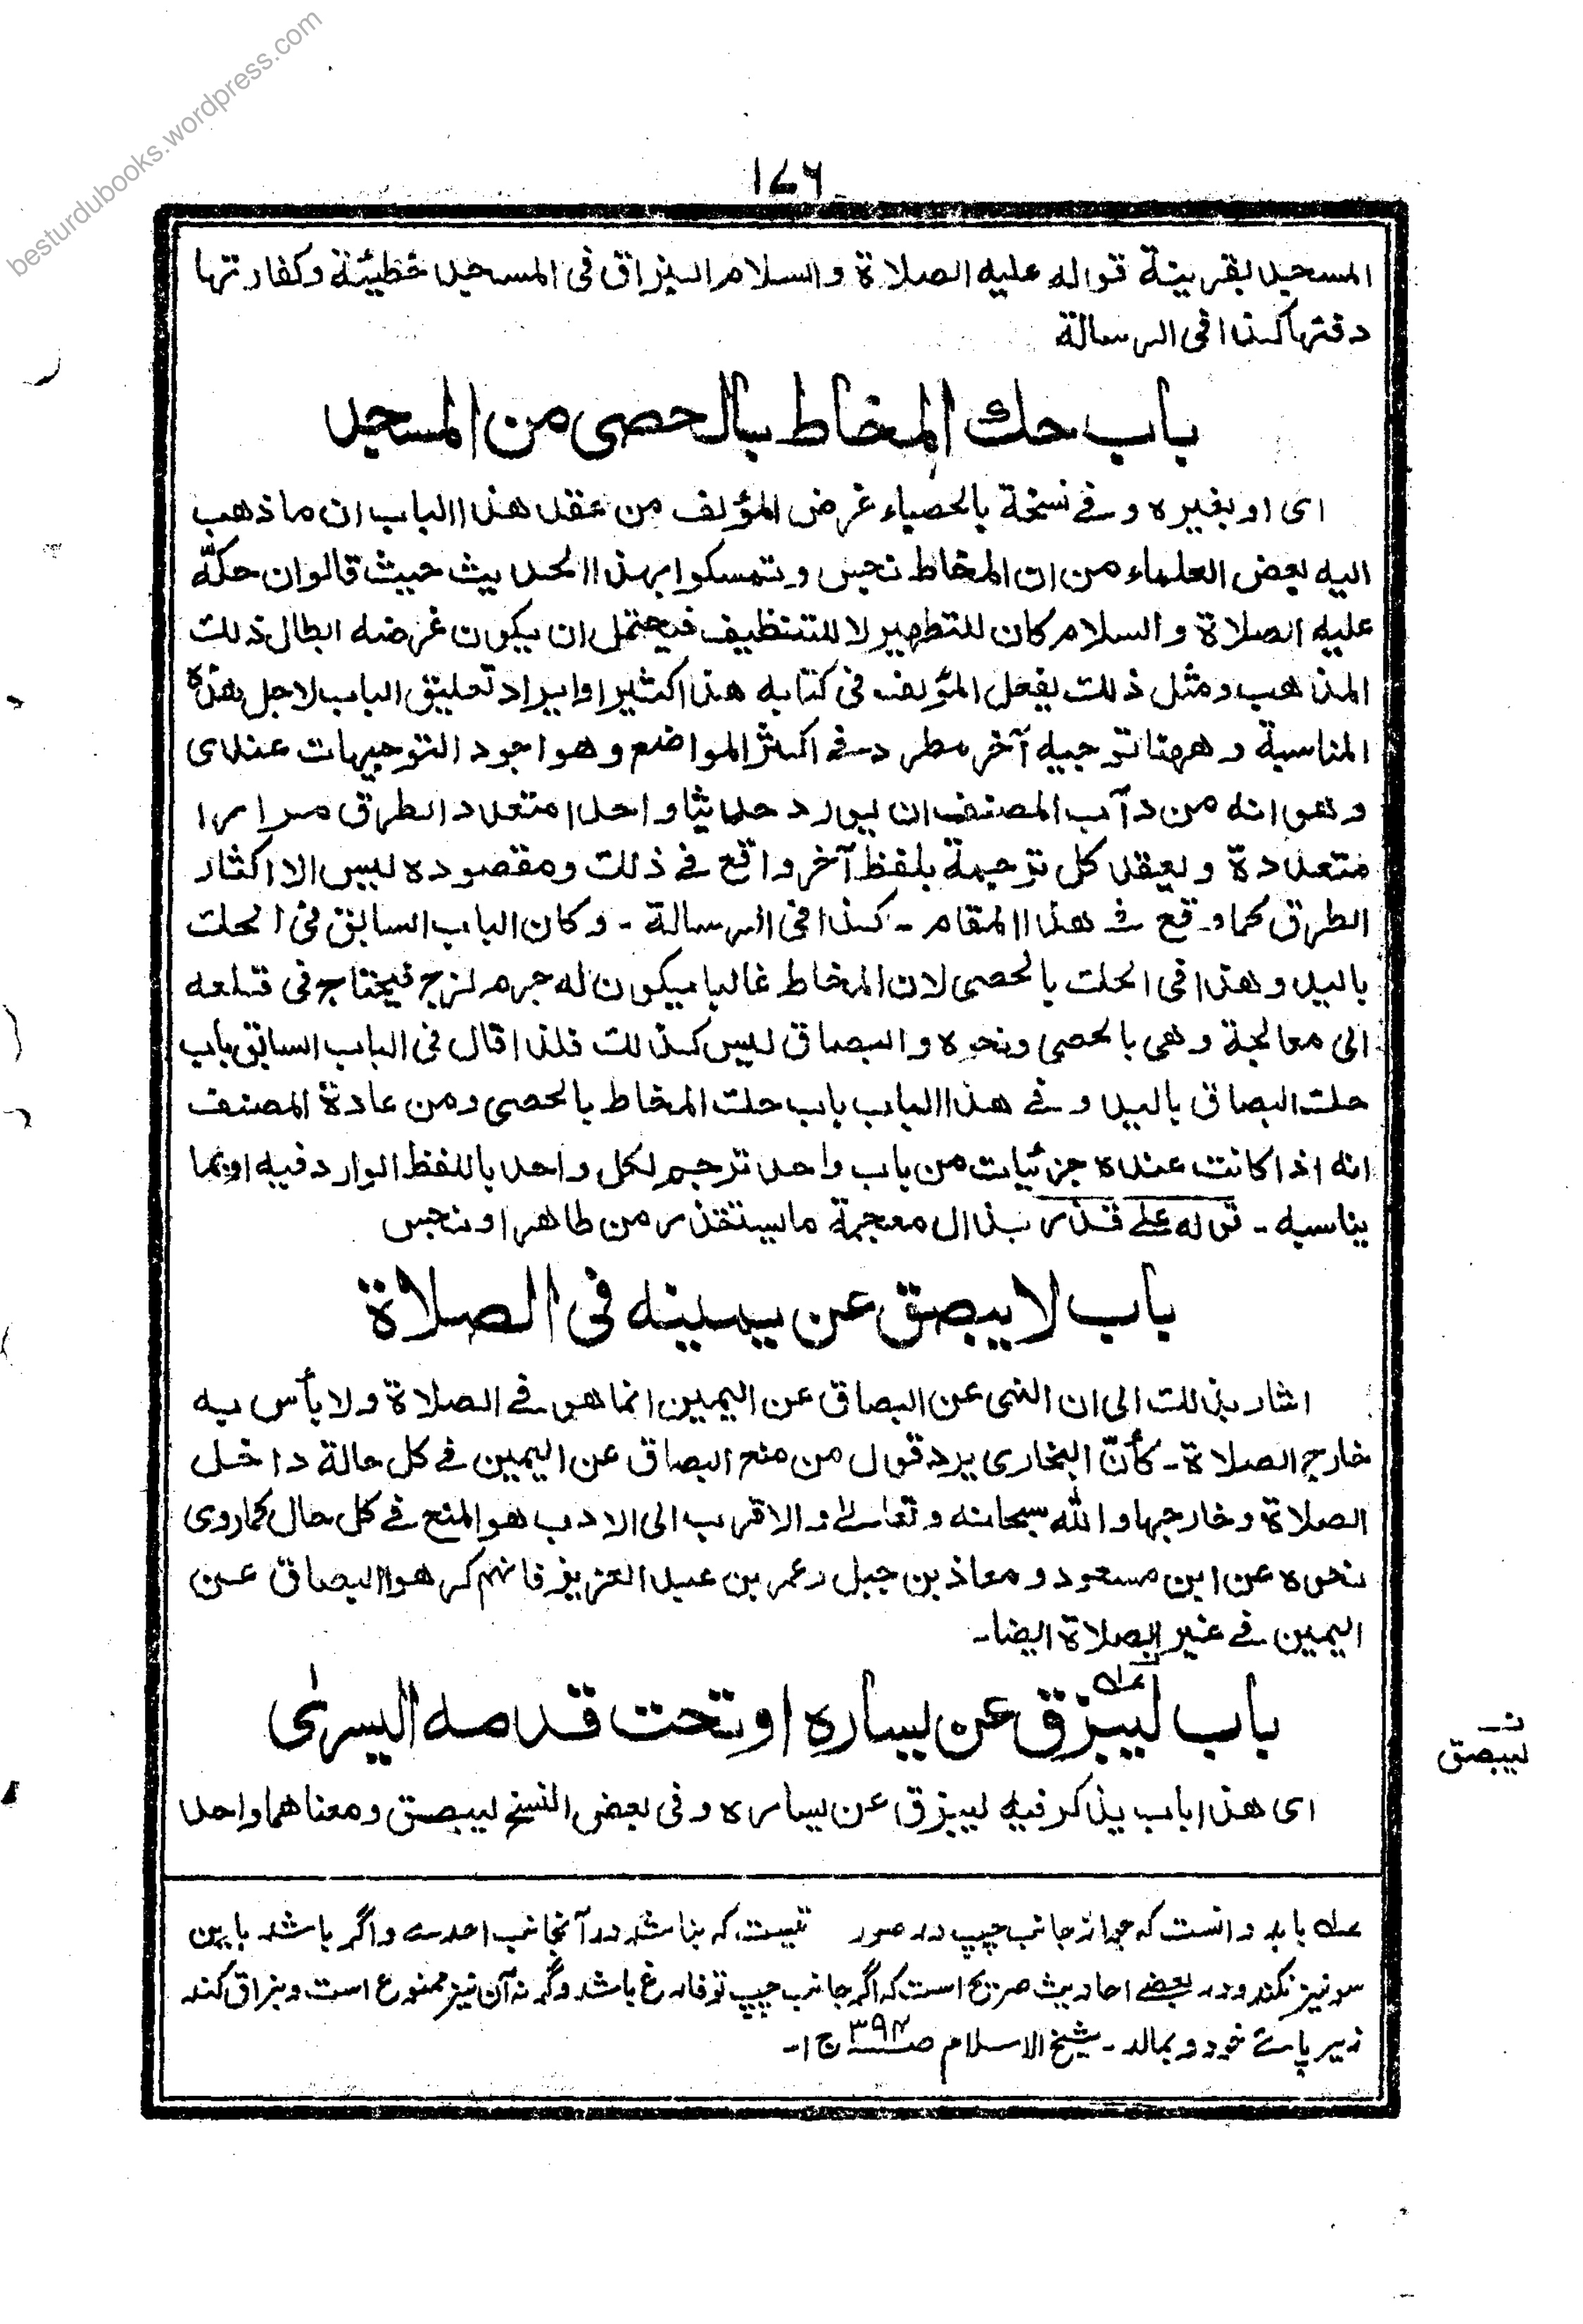 besturdubooks.wordpress.com
۱۷۶
المسجد بقرينة قوله عليه الصلاة والسلام البزاق في المسجد خطيئة وكفارتها
دفنها كذا في الرسالة
باب حك المخاط بالحصى من المسجد
اى او بغيره وفي نسخة بالحصباء غرض المؤلف من عقد هذا الباب ان ما ذهب
اليه بعض العلماء من ان المخاط نجس وتمسكوا بهذا الحديث حيث قالوا ان حكّه
عليه الصلاة والسلام كان للتطهير لا للتنظيف فيحتمل ان يكون غرضه ابطال ذلك
المذهب ومثل ذلك يفعل المؤلف في كتابه هذا كثيرا وايراد تعليق الباب لاجل هذه
المناسبة وههنا توجيه آخر مطرد في اكثر المواضع وهو اجود التوجيهات عندى
وهو انه من دآب المصنف ان يورد حديثا واحدا متعدد الطرق مرارا
متعددة ويعقد كل ترجمة بلفظ آخر واقع في ذلك ومقصوده ليس الا اكثار
الطرق كما وقع في هذا المقام ـ كذا في الرسالة ـ وكان الباب السابق في الحك
باليد وهذا في الحك بالحصى لان المخاط غالبا يكون له جرم لزج فيحتاج في قلعه
الى معالجة وهى بالحصى ونحوه والبصاق ليس كذلك فلذا قال في الباب السابق باب
حك البصاق باليد وفي هذا الباب باب حك المخاط بالحصى ومن عادة المصنف
انه اذا كانت عنده جزئيات من باب واحد ترجم لكل واحد باللفظ الوارد فيه او بما
يناسبه ـ قوله على قذر بذال معجمة ما يستقذر من طاهر او نجس
باب لا يبصق عن يمينه في الصلاة
اشار بذلك الى ان النهى عن البصاق عن اليمين انما هو في الصلاة ولا بأس به
خارج الصلاة ـ كأنّ البخارى يرد قول من منع البصاق عن اليمين في كل حالة داخل
الصلاة وخارجها والله سبحانه وتعالى والاقرب الى الادب هو المنع في كل حال كما روى
نحوه عن ابن مسعود ومعاذ بن جبل وعمر بن عبد العزيز فانهم كرهوا البصاق عن
اليمين في غير الصلاة ايضا ـ
باب ليبزق عن يساره او تحت قدمه اليسرى
عله
نـ
ليبصق
اى هذا باب يذكر فيه ليبزق عن يساره وفي بعض النسخ ليبصق ومعناهما واحد
عله بايد دانست كه جواز جانب چپ در صور تيست كه بناشد در آنجانب احدے واگر باشد باين
سو نيز نكند ودر بعضے احاديث صريح است كه اگر جانب چپ تو فارغ باشد وگرنه آن نيز ممنوع است وبزاق كند
زير پائے خود و بمالد ـ شيخ الاسلام صـ ۳۹۴ ج ا ـ